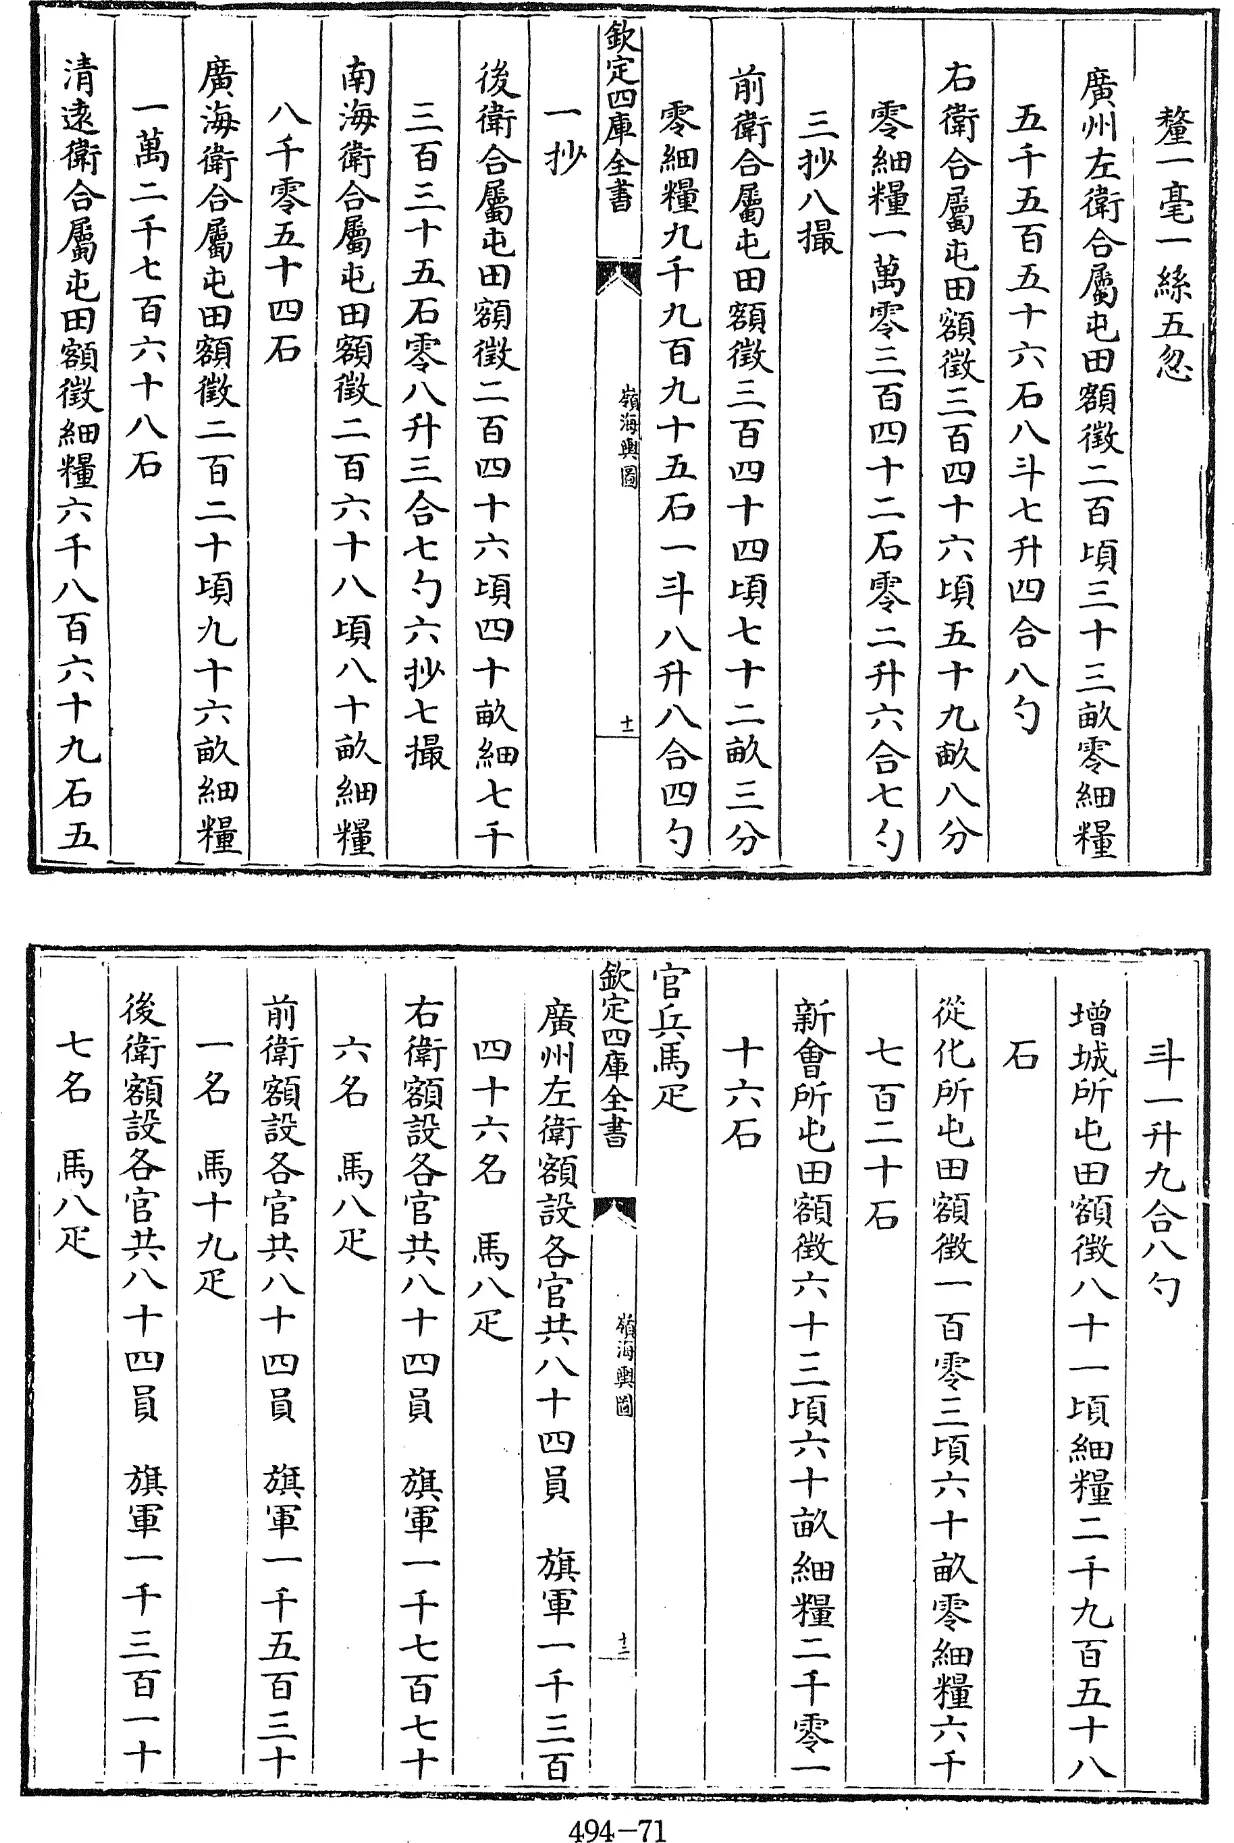 釐一毫一絲五忽
廣州左衛合屬屯田額徵二百頃三十三畝零細糧
五千五百五十六石八斗七升四合八勺
右衛合屬屯田額徵三百四十六頃五十九畝八分
零細糧一萬零三百四十二石零二升六合七勺
三抄八撮
前衛合屬屯田額徵三百四十四頃七十二畝三分
零細糧九千九百九十五石一斗八升八合四勺
欽定四庫全書
嶺海輿圖
十一
一抄
後衛合屬屯田額徵二百四十六頃四十畝細七千
三百三十五石零八升三合七勺六抄七撮
南海衛合屬屯田額徵二百六十八頃八十畝細糧
八千零五十四石
廣海衛合屬屯田額徵二百二十頃九十六畝細糧
一萬二千七百六十八石
清遠衛合屬屯田額徵細糧六千八百六十九石五
斗一升九合八勺
增城所屯田額徵八十一頃細糧二千九百五十八
石
從化所屯田額徵一百零三頃六十畝零細糧六千
七百二十石
新會所屯田額徵六十三頃六十畝細糧二千零一
十六石
官兵馬疋
欽定四庫全書
嶺海輿圖
十二
廣州左衛額設各官共八十四員　旗軍一千三百
四十六名　馬八疋
右衛額設各官共八十四員　旗軍一千七百七十
六名　馬八疋
前衛額設各官共八十四員　旗軍一千五百三十
一名　馬十九疋
後衛額設各官共八十四員　旗軍一千三百一十
七名　馬八疋
494-71